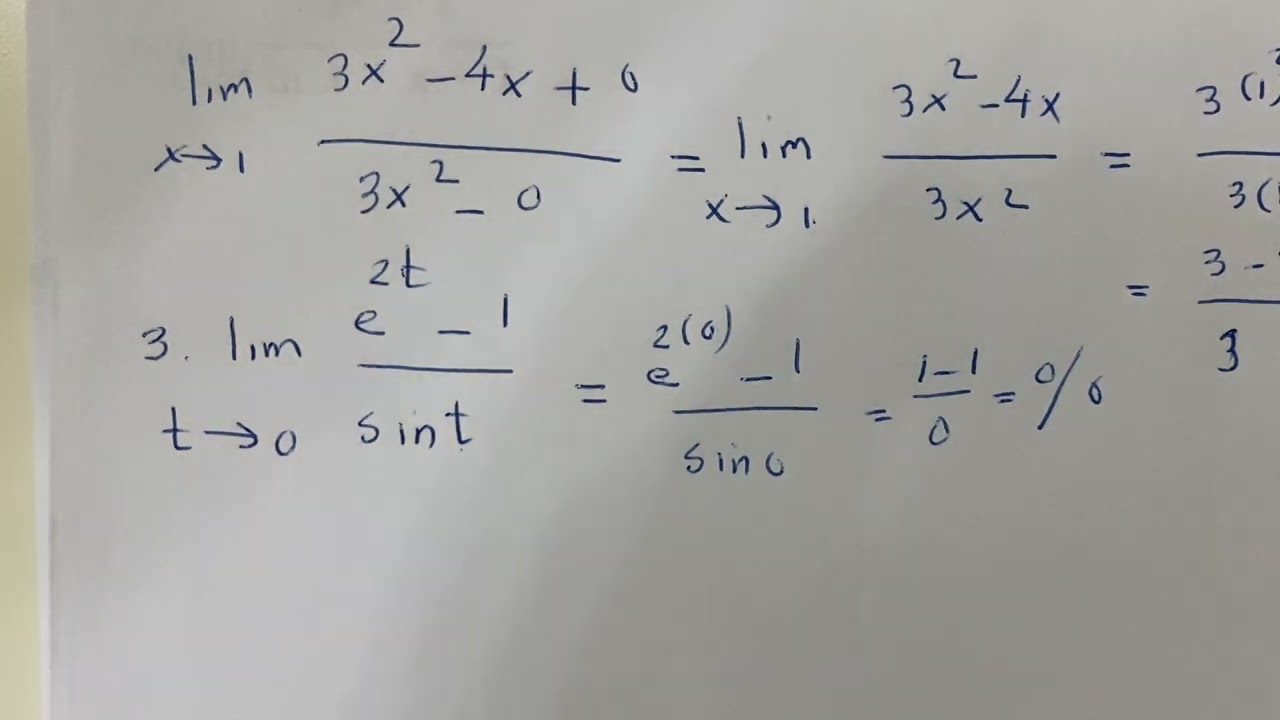 lim x→1 (3x² - 4x + 0)/(3x² - 0) = lim x→1 (3x² - 4x)/(3x²) = 3(1)²/3(
= 3 -/3
3. lim t→0 (e^2t - 1)/(sin t) = (e^2(0) - 1)/(sin 0) = (1-1)/0 = 0/0